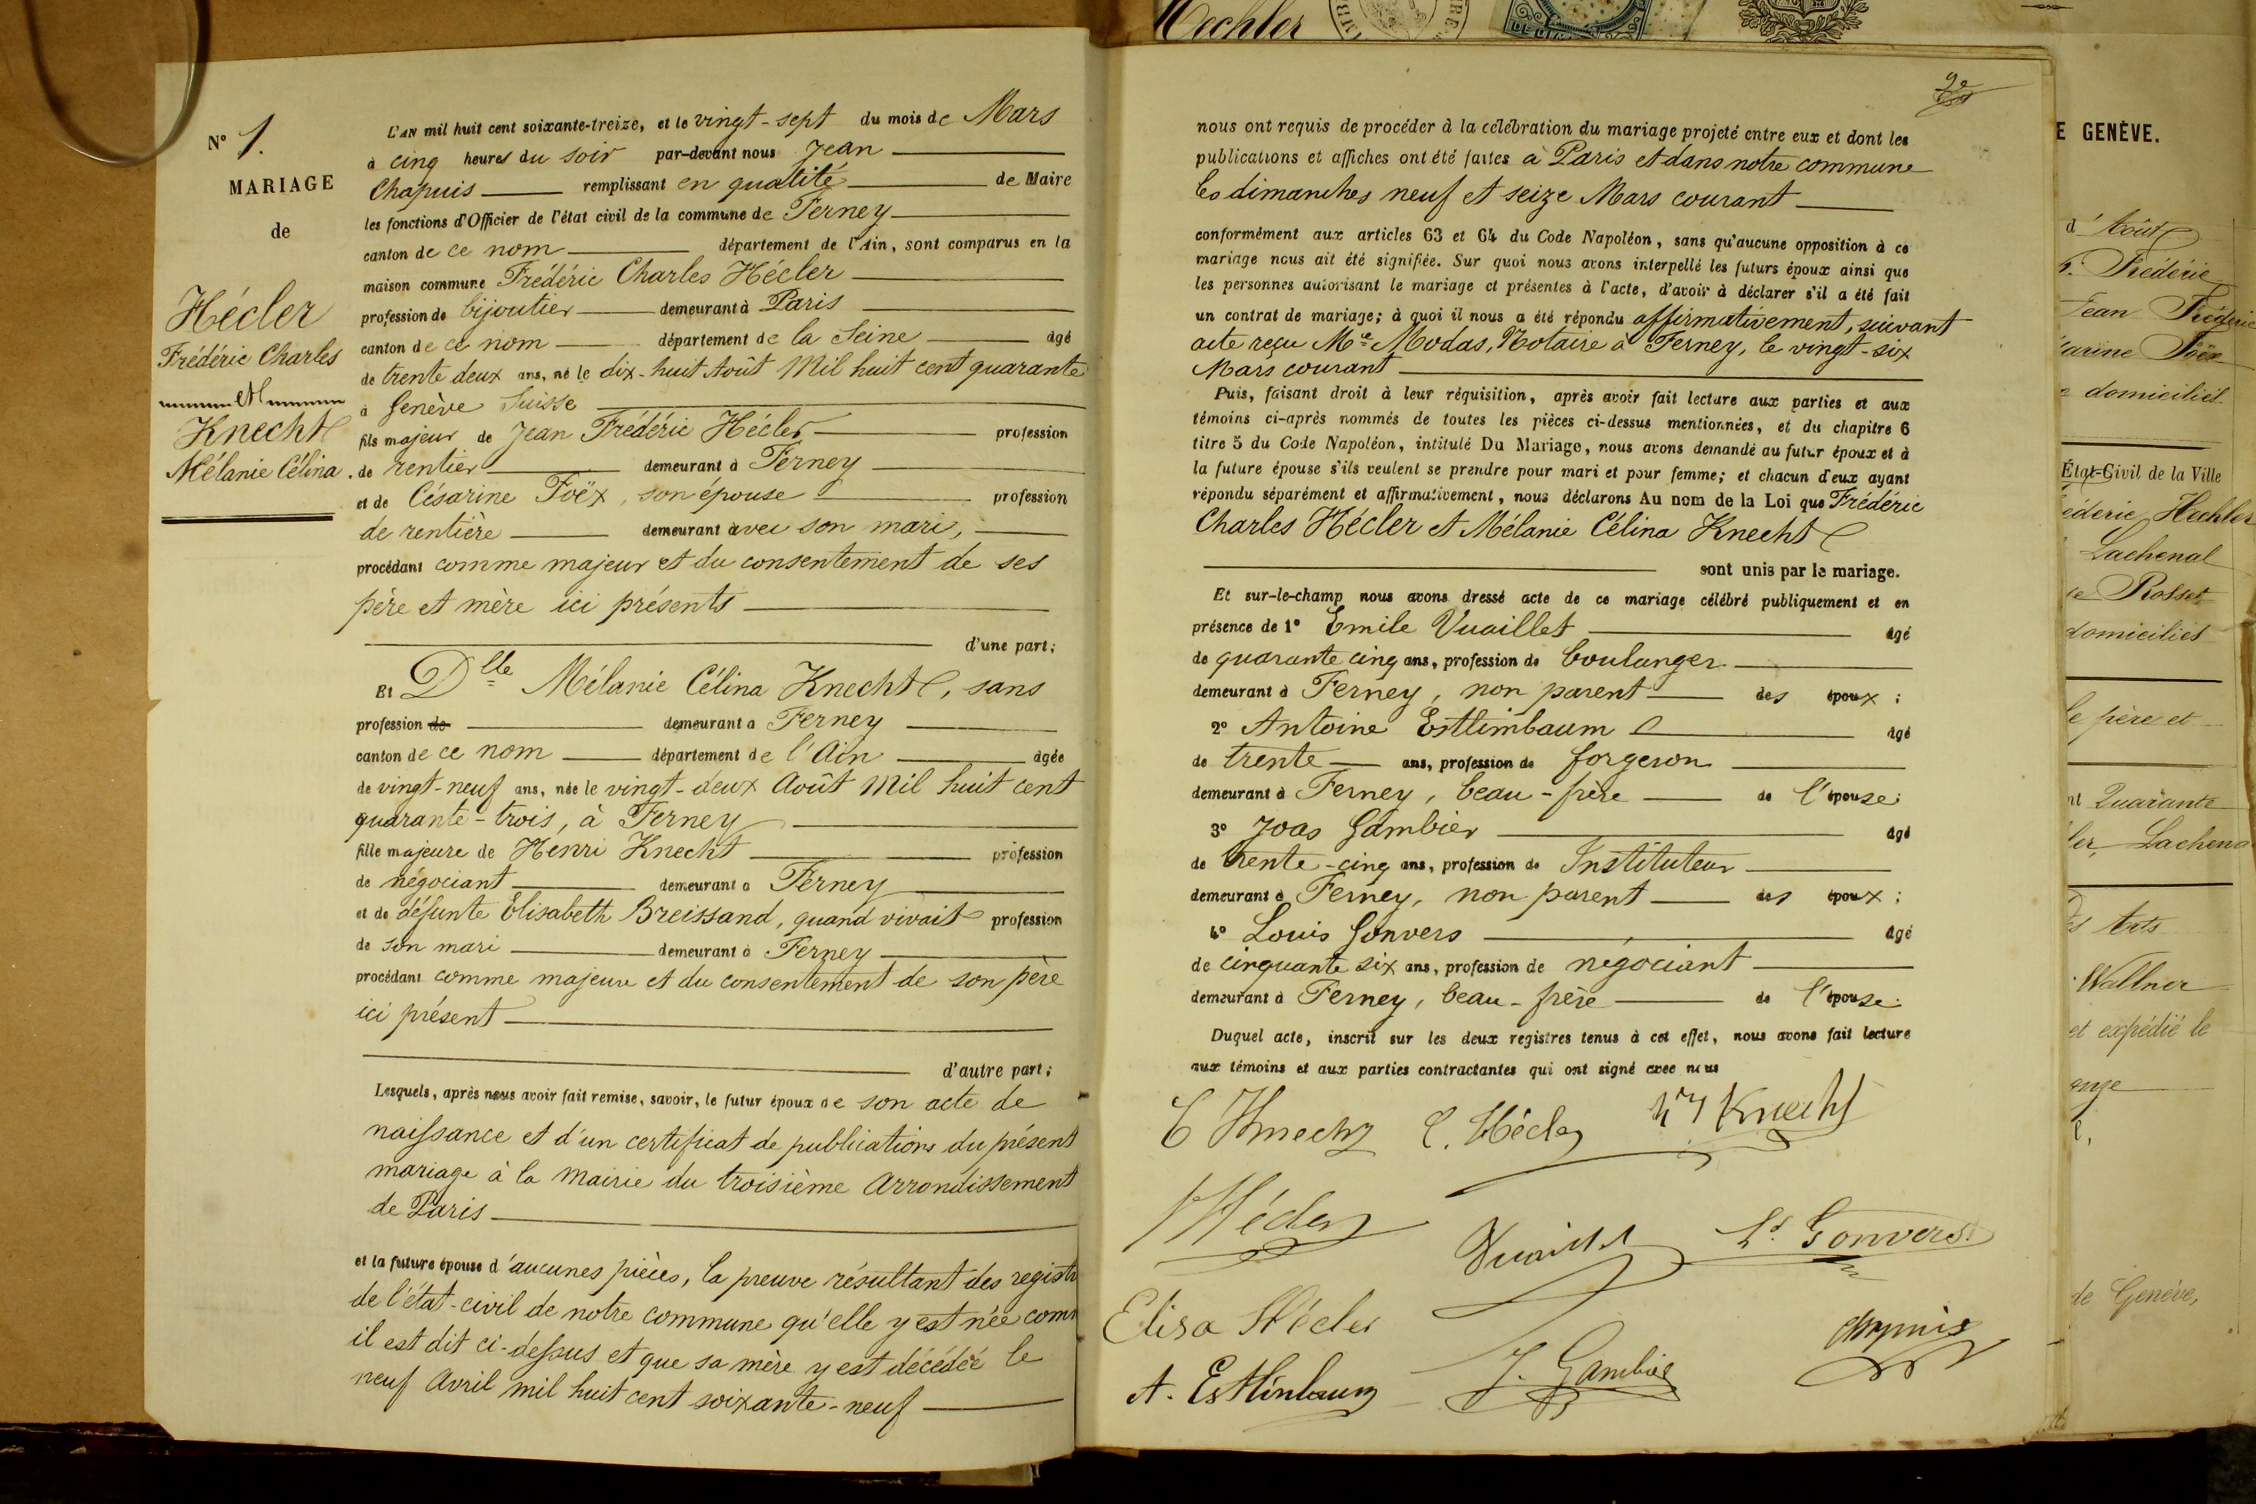 Hechler
N° 1.
MARIAGE
de
Hécler
Frédéric Charles
et
Knecht
Mélanie Célina.
L'AN mil huit cent soixante-treize, et le vingt-sept du mois de Mars
à cinq heures du soir par-devant nous Jean
Chapuis remplissant en qualité de Maire
les fonctions d'Officier de l'état civil de la commune de Ferney
canton de ce nom département de l'Ain, sont comparus en la
maison commune Frédéric Charles Hécler
profession de bijoutier demeurant à Paris
canton de ce nom département de la Seine âgé
de trente deux ans, né le dix-huit Août Mil huit cent quarante
à Genève Suisse
fils majeur de Jean Frédéric Hécler profession
de rentier demeurant à Ferney
et de Césarine Foëx, son épouse profession
de rentière demeurant avec son mari,
procédant comme majeur et du consentement de ses
père et mère ici présents
d'une part;
Et Dlle Mélanie Célina Knecht, sans
profession de demeurant à Ferney
canton de ce nom département de l'Ain âgée
de vingt-neuf ans, née le vingt-deux Août Mil huit cent
quarante-trois, à Ferney
fille majeure de Henri Knecht profession
de négociant demeurant à Ferney
et de défunte Elisabeth Breissand, quand vivait profession
de son mari demeurant à Ferney
procédant comme majeure et du consentement de son père
ici présent
d'autre part;
Lesquels, après nous avoir fait remise, savoir, le futur époux de son acte de
naissance et d'un certificat de publications du présent
mariage à la Mairie du troisième Arrondissement
de Paris
et la future épouse d'aucunes pièces, la preuve résultant des registr
de l'état-civil de notre commune qu'elle y est née com
il est dit ci-dessus et que sa mère y est décédée le
neuf Avril mil huit cent soixante-neuf
nous ont requis de procéder à la célébration du mariage projeté entre eux et dont les
publications et affiches ont été faites à Paris et dans notre commune
les dimanches neuf et seize Mars courant
conformément aux articles 63 et 64 du Code Napoléon, sans qu'aucune opposition à ce
mariage nous ait été signifiée. Sur quoi nous avons interpellé les futurs époux ainsi que
les personnes autorisant le mariage et présentes à l'acte, d'avoir à déclarer s'il a été fait
un contrat de mariage; à quoi il nous a été répondu affirmativement, suivant
acte reçu Me Modas, Notaire à Ferney, le vingt-six
Mars courant
Puis, faisant droit à leur réquisition, après avoir fait lecture aux parties et aux
témoins ci-après nommés de toutes les pièces ci-dessus mentionnées, et du chapitre 6
titre 5 du Code Napoléon, intitulé Du Mariage, nous avons demandé au futur époux et à
la future épouse s'ils veulent se prendre pour mari et pour femme; et chacun d'eux ayant
répondu séparément et affirmativement, nous déclarons Au nom de la Loi que Frédéric
Charles Hécler et Mélanie Célina Knecht
sont unis par le mariage.
Et sur-le-champ nous avons dressé acte de ce mariage célébré publiquement et en
présence de 1° Emile Vuaillet âgé
de quarante cinq ans, profession de boulanger
demeurant à Ferney, non parent des époux;
2° Antoine Esttimbaum âgé
de trente ans, profession de forgeron
demeurant à Ferney, beau-frère de l'épouse;
3° Joas Gambier âgé
de trente-cinq ans, profession de Instituteur
demeurant à Ferney, non parent des époux;
4° Louis Gonvers âgé
de cinquante six ans, profession de négociant
demeurant à Ferney, beau-frère de l'épouse.
Duquel acte, inscrit sur les deux registres tenus à cet effet, nous avons fait lecture
aux témoins et aux parties contractantes qui ont signé avec nous
C Knecht C. Hécler Hry Knecht
Hécler
Vuaillet Ls Gonvers
Elisa Hécler
Chapuis
A. Esttinbaum J. Gambier
E GENÈVE.
d'Août
Frédéric
Jean Frédéric
arine Foëx
domiciliés
État-Civil de la Ville
édéric Hechler
Lachenal
Rosset
domiciliés
le père et
Quarante
ler, Lachena
Arts
Wallner
et expédié le
de Genève,